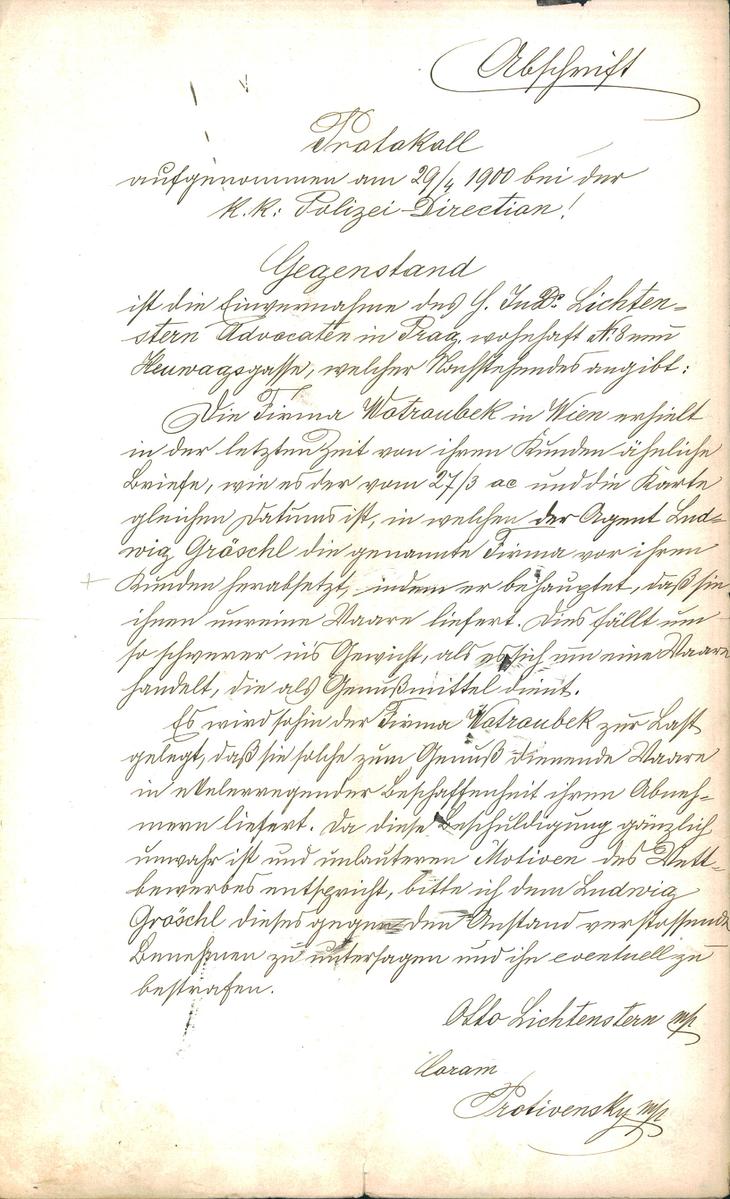 Abschrift
Protokoll
aufgenommen am 29/4 1900 bei der
k. k: Polizei-Direction!
Gegenstand
ist die Einvernahme des H. JuDr Lichten=
stern Advocaten in Prag, wohnhaft N: 8 neu
Heuwagsgasse, welcher Nachstehendes angibt:
Die Firma Wotraubek in Wien erhielt
in der letzten Zeit von ihren Kunden ähnliche
Briefe, wie es der vom 27/3 ac und die Karte
gleichen Datums ist, in welchen der Agent Lud=
wig Gröschl die genannte Firma vor ihren
Kunden herabsetzt, indem er behauptet, daß sie
ihnen unreine Waare liefert. Dies fällt um
so schwerer in's Gewicht, als es sich um eine Waare
handelt, die als Genußmittel dient.
Es wird sohin der Firma Wotraubek zur Last
gelegt, daß sie solche zum Genuß dienende Waare
in ekelerregender Beschaffenheit ihren Abneh=
mern liefert. Da diese Beschuldigung gänzlich
unwahr ist und unlauteren Motiven des Wett=
bewerbes entspricht, bitte ich dem Ludwig
Gröschl dieses gegen den Anstand verstossende
Benehmen zu untersagen und ihn eventuell zu
bestrafen.
Otto Lichtenstern mp
Coram
Protivensky mp